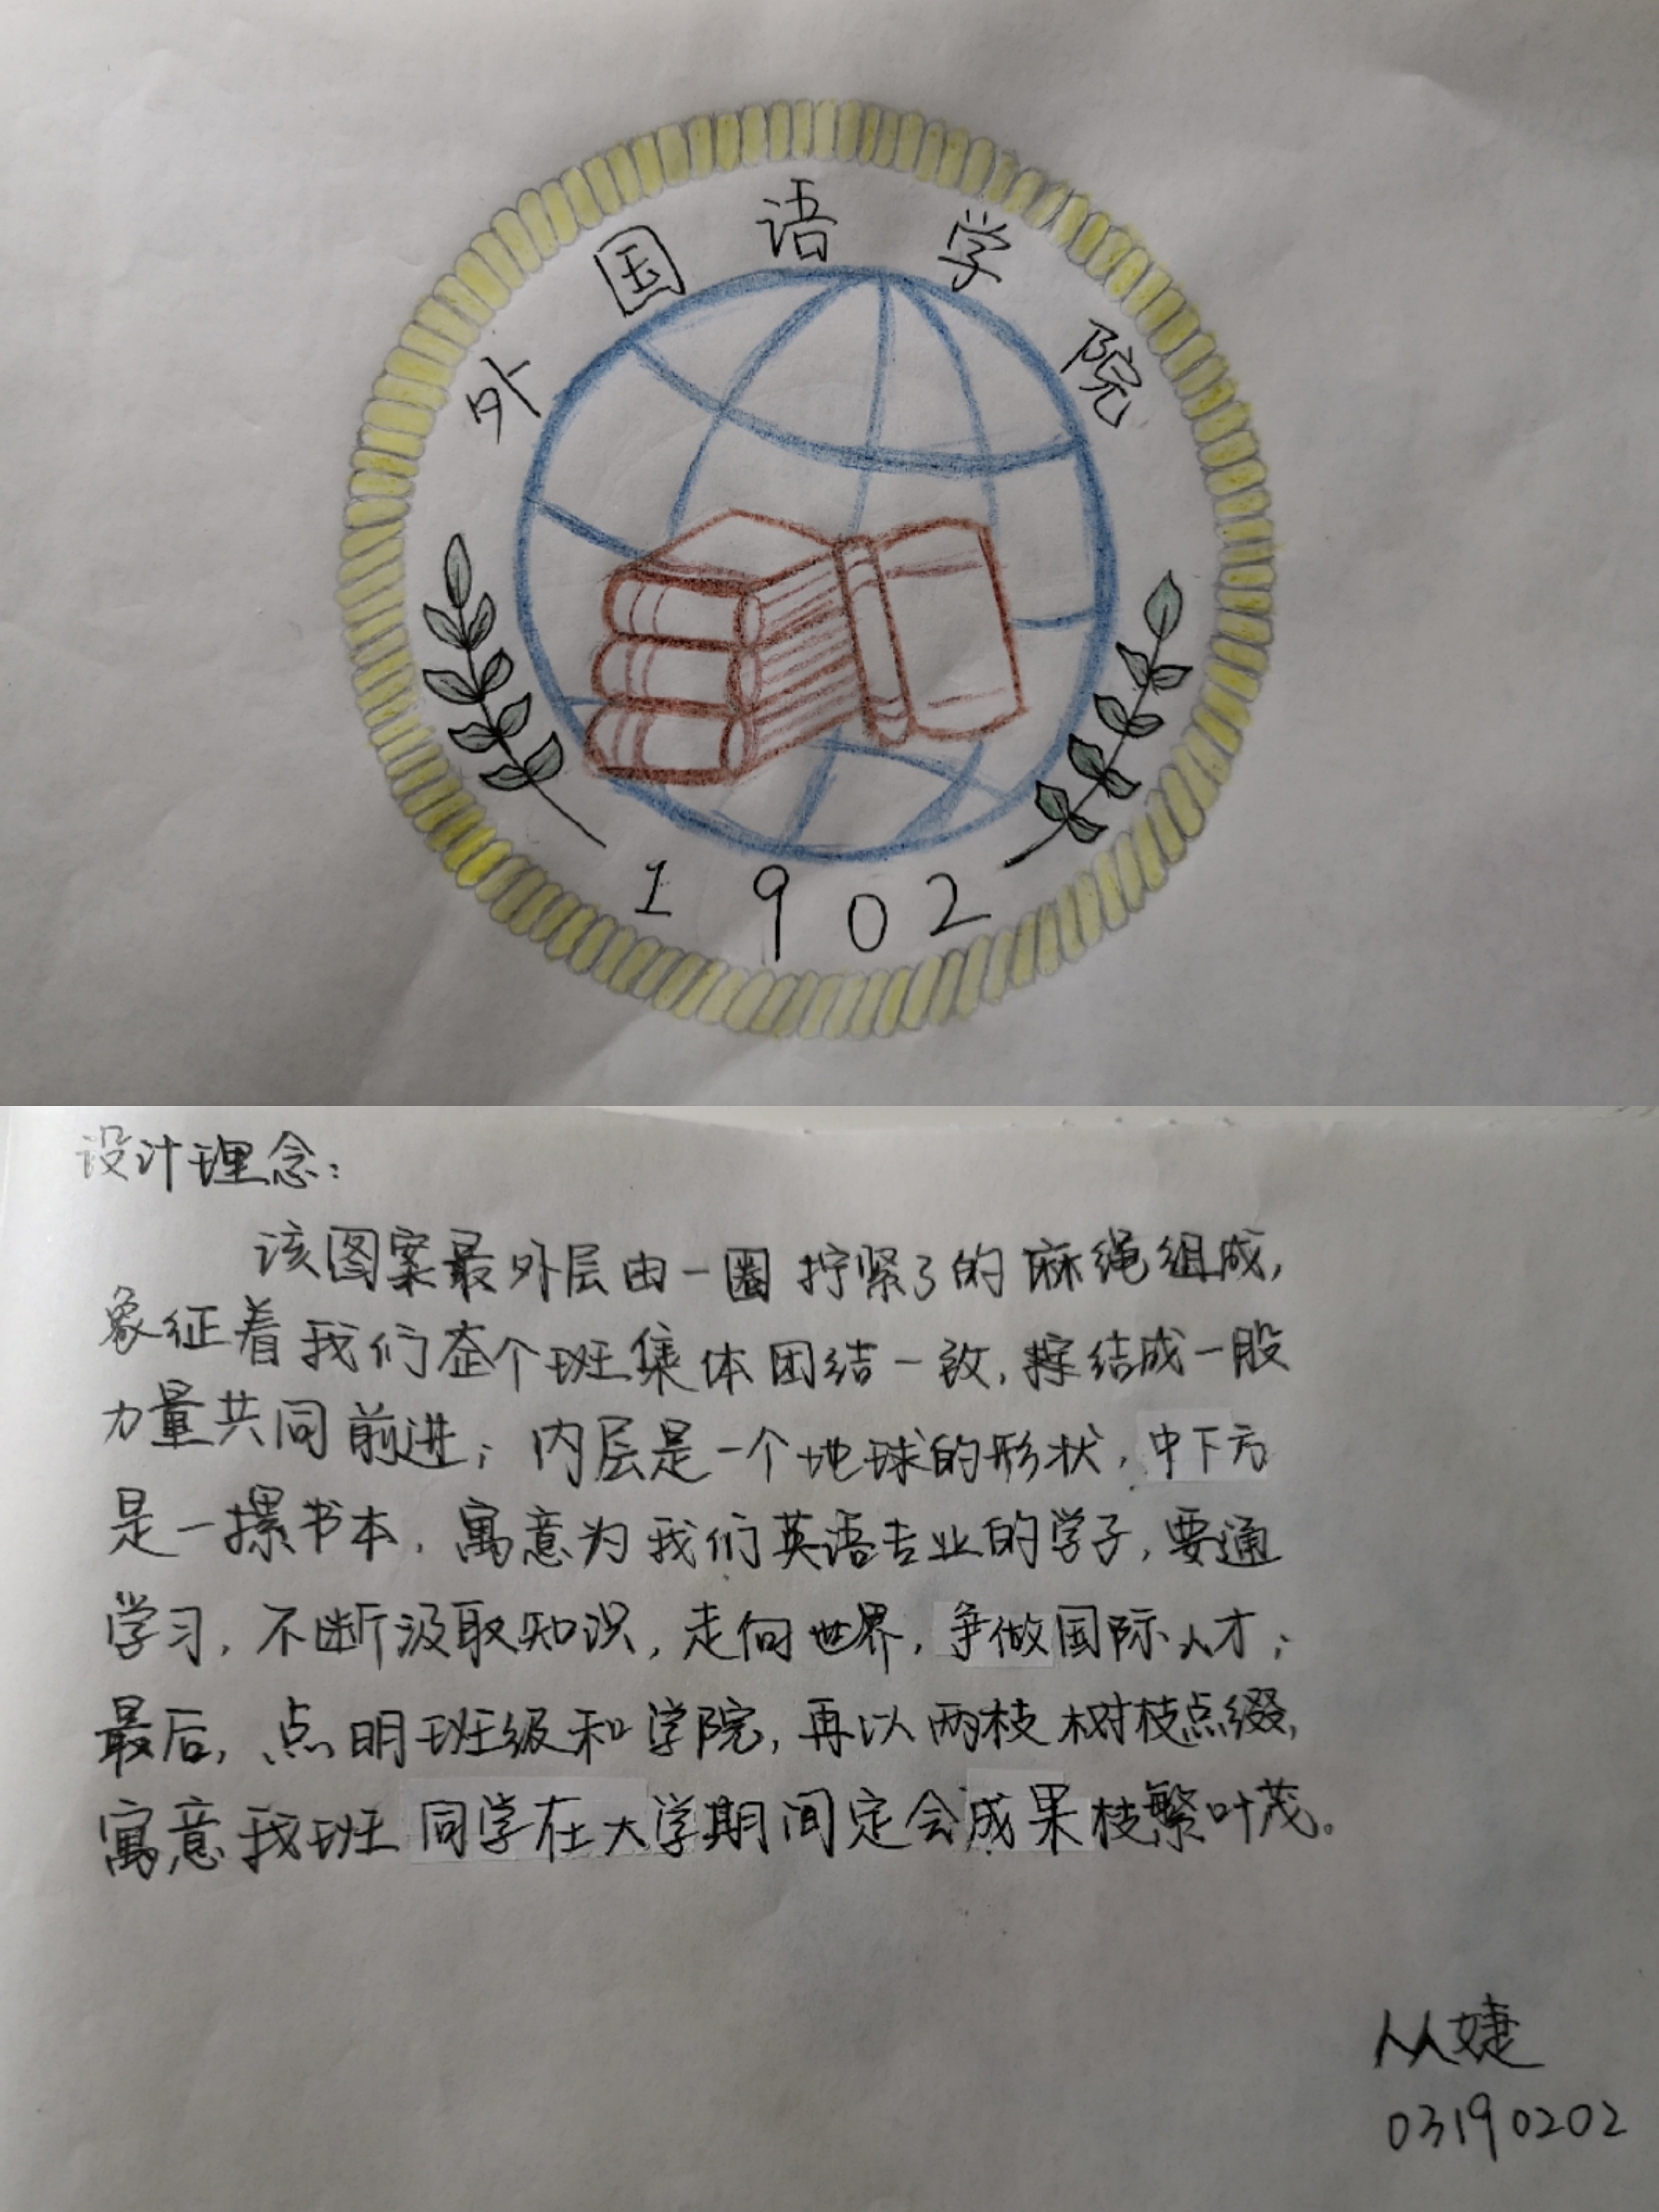 外国语学院
1902
设计理念:
该图案最外层由一圈拧紧了的麻绳组成,
象征着我们整个班集体团结一致,摔结成一股
力量共同前进;内层是一个地球的形状,中下方
是一摞书本,寓意为我们英语专业的学子,要通
学习,不断汲取知识,走向世界,争做国际人才;
最后,点明班级和学院,再以两枝树枝点缀,
寓意我班同学在大学期间定会成果枝繁叶茂。
从婕
03190202